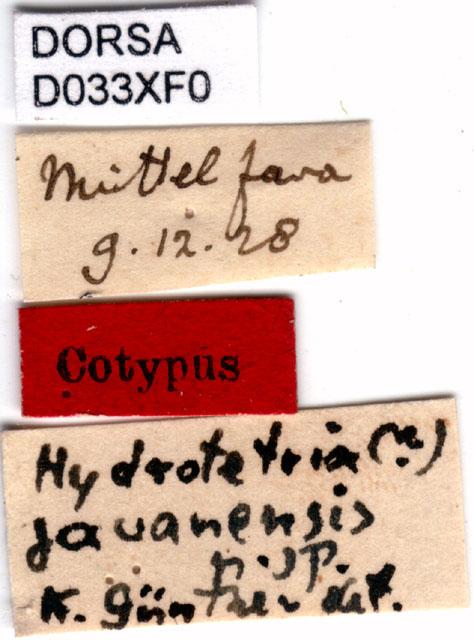 DORSA
D033XF0
Mittel Java
9.12.28
Cotypus
Hydrotetrix (n.)
javanensis
n. sp.
K. Günther det.